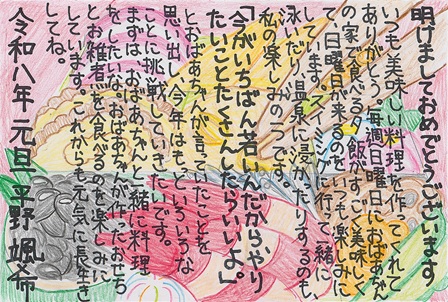 明けましておめでとうございます
いつも美味しい料理を作ってくれて
ありがとう。毎週日曜日におばあちゃん
の家で食べる夕飯がすごく美味しく
て、日曜日が来るのをいつも楽しみに
しています。スイミングに行って一緒に
泳いだり、温泉に浸かったりするのも、
私の楽しみの一つです。
「今がいちばん若いんだからやり
たいことたくさんしたらいいよ。」
とおばあちゃんが言っていたことを
思い出し、今年はもっといろいろな
ことに挑戦していきたいです。
まずは、おばあちゃんと一緒に料理
をしたいな。おばあちゃんが作ったおせち
とお雑煮を食べるのを楽しみに
しています。これからも元気に長生き
してね。
令和八年 元旦 平野 颯希